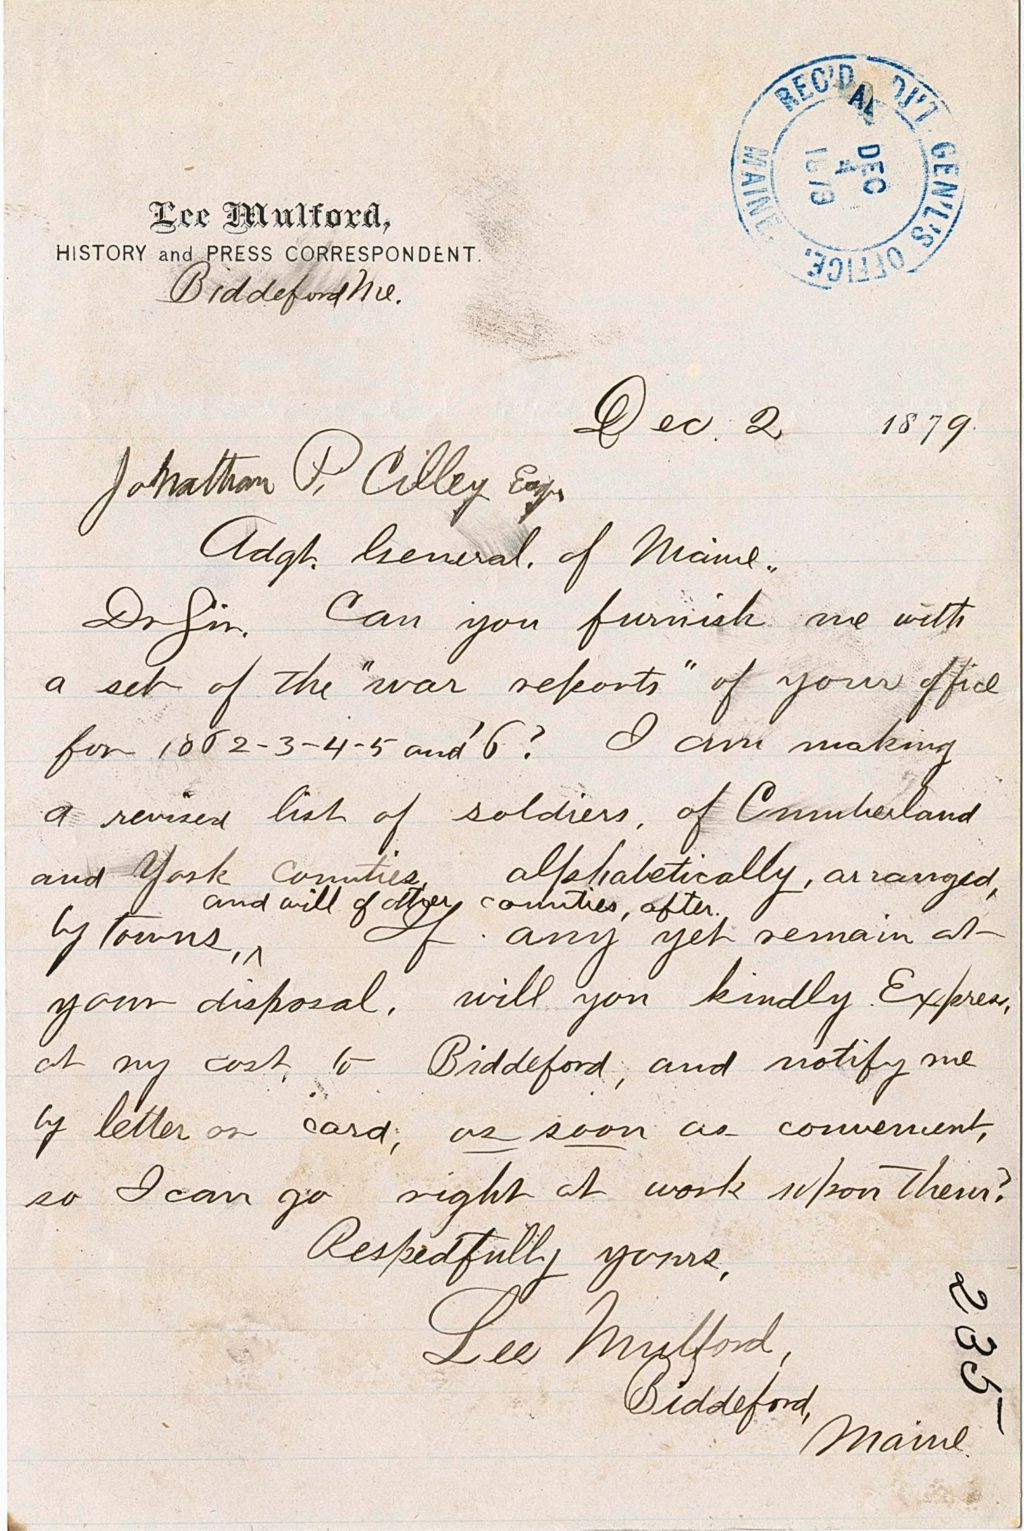 REC'D ADJ'T. GEN'L'S OFFICE, MAINE.
DEC
4
1879
Lee Mulford,
HISTORY and PRESS CORRESPONDENT.
Biddeford Me.
Dec. 2 1879.
Jonathan P. Cilley Esq.
Adgt. General. of Maine.
Dr Sir. Can you furnish me with
a set of the "war reports" of your office
for 1862-3-4-5 and '6? I am making
a revised list of soldiers, of Cumberland
and York Counties, alphabetically, arranged,
and will of other counties, after.
by towns,^ If any yet remain at
your disposal, will you kindly Express,
at my cost, to Biddeford, and notify me
by letter or card, as soon as convenient,
so I can go right at work upon them?
Respectfully yours,
Lee Mulford,
Biddeford,
Maine.
235